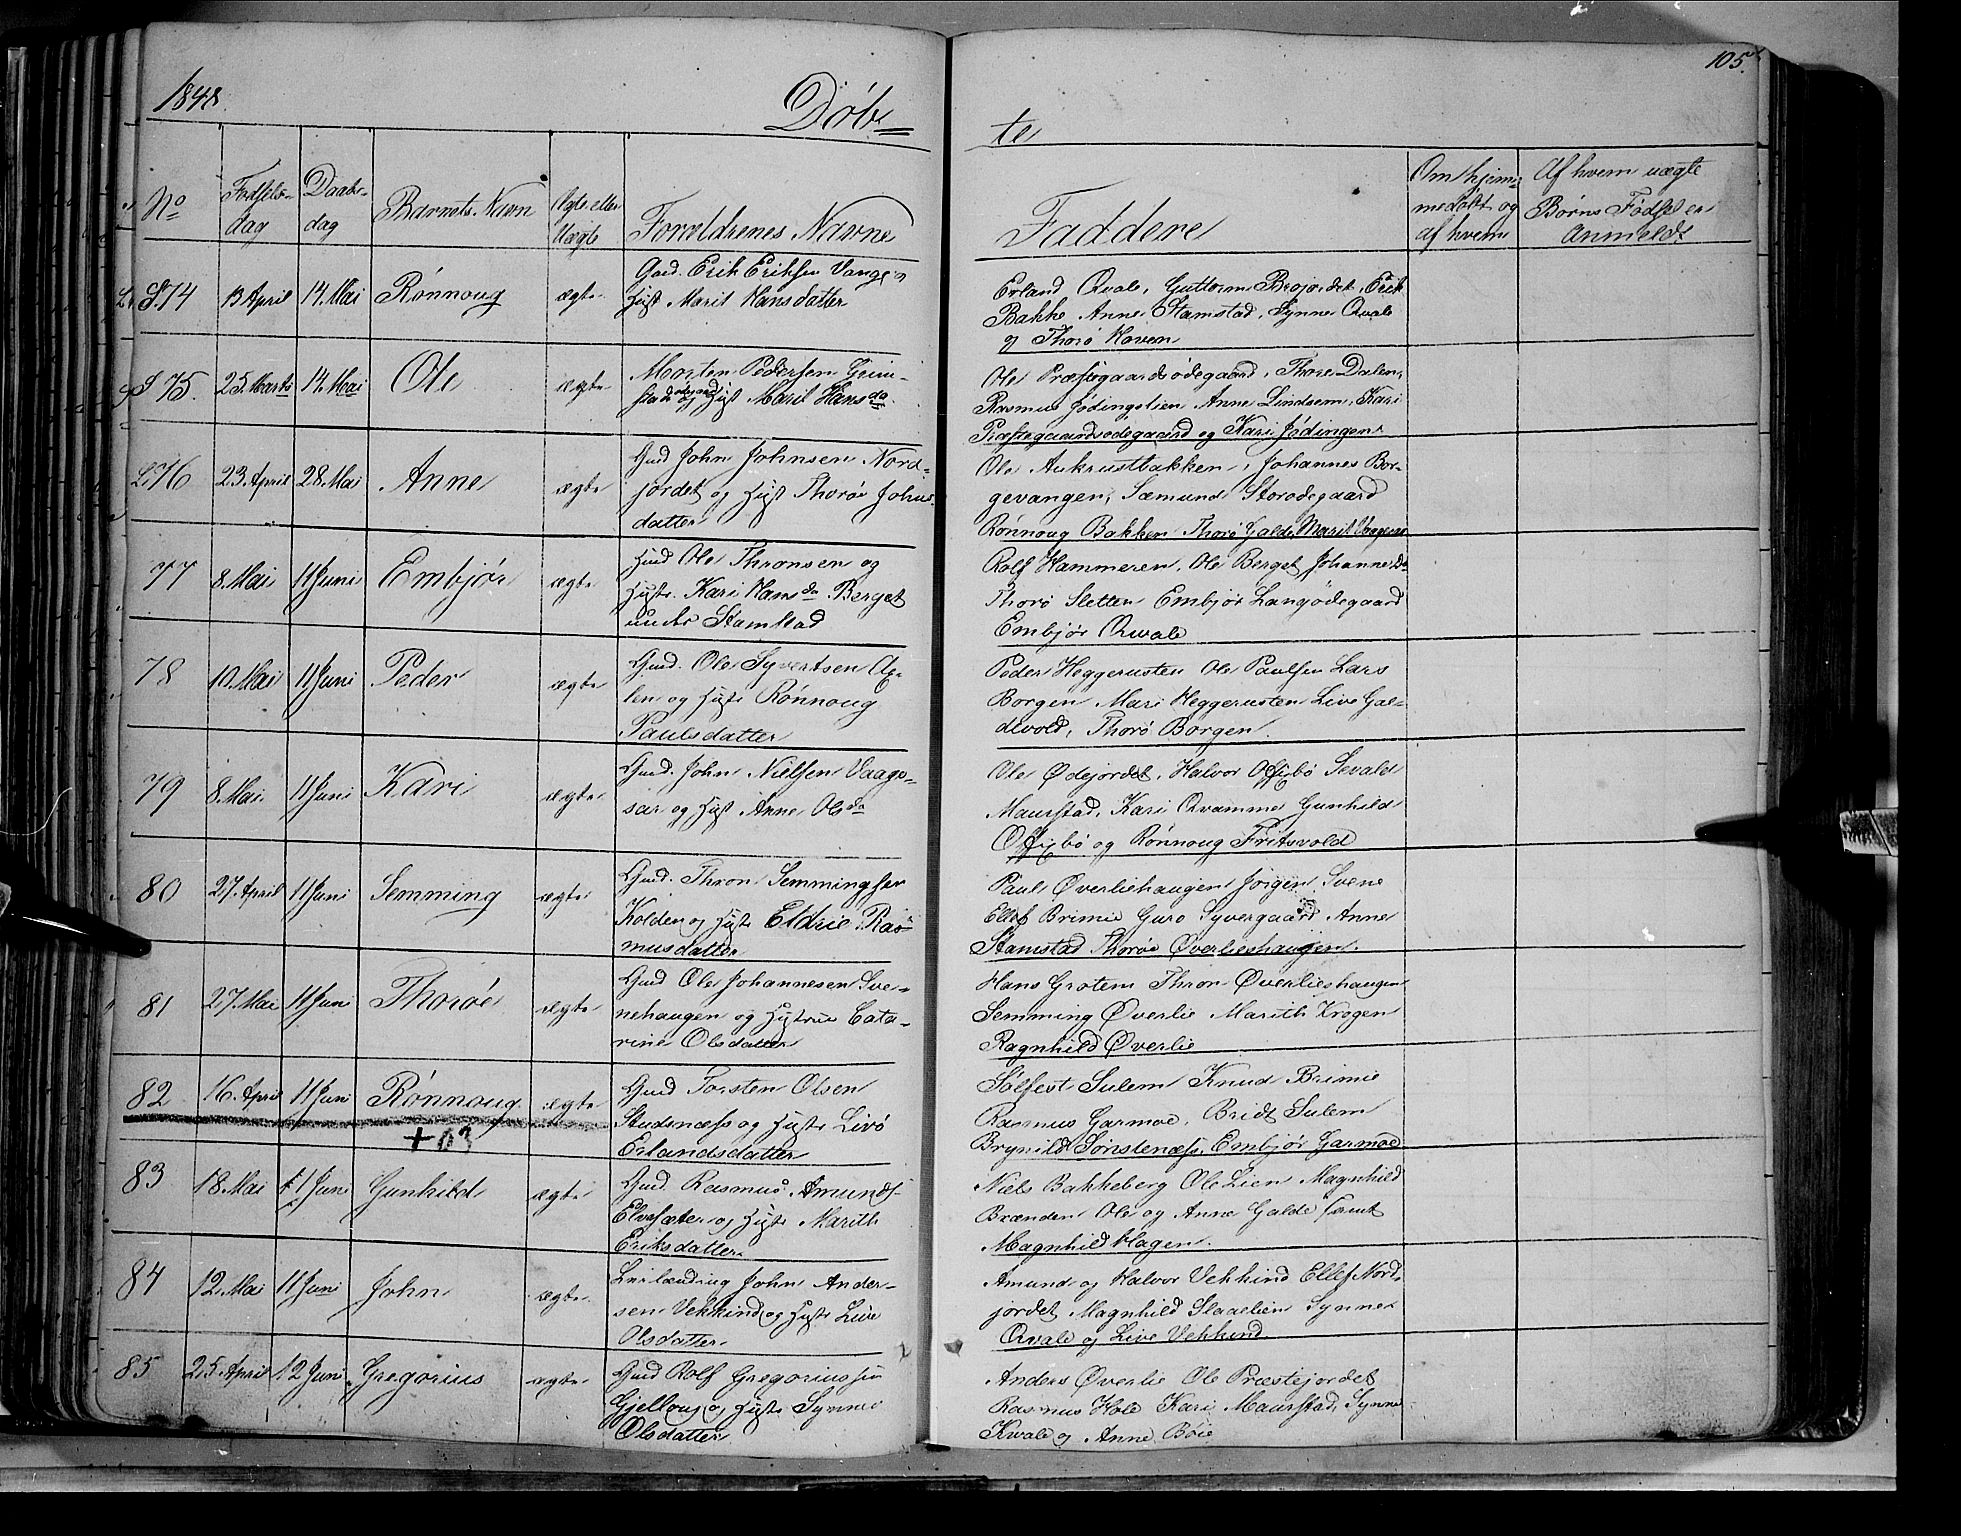 1848.
Døb=
te
105.
No
Fødsels-
dag
Daabs-
dag
Barnets Navn
Ægte eller
Uægte
Forældrenes Navne
Faddere
Om hjem=
medøbt og
af hvem
Af hvem uægte
Børns Fødsel er
Anmeldt
74
13 April
14. Mai
Rønnoug
ægte
Gmd. Erik Eriksen Vangen
Hust Marit Hansdatter
Erland Qvale, Guttorm Brojordet, Erik
Bakke Anne Stamstad, Synne Qvale
og Thorø Hoven
75.
25. Marts
14. Mai
Ole
ægte
Morten Pedersen Grim-
stadødegaard og Hust Marit Hansda
Ole Præstegaardsødegaard, Thore Dalen,
Rasmus Jødingslien Anne Lindsem, Kari
Præstegaardsødegaard og Kari Jødingen
76
23. April
28. Mai
Anne
ægte
Gmd John Johnsen Nord-
jordet og Hust Thorøe Johns
datter
Ole Aukrustbakken, Johannes Bor-
gevangen, Sæmund Storødegaard
Rønnoug Bakken Thorø Galde, Marit Vangen
77
8. Mai
11 Juni
Embjør
ægte
Hmd Ole Thronsen og
Hustr. Kari Hansda Berget
under Stamstad
Rolf Hammeren, Ole Berget, Johanne Do
Thorø Sletten Embjør Langødegaard
Embjør Qvale
78
10. Mai
11 Juni
Peder
ægte
Gmd. Ole Syvertsen Ax-
len og Hustr Rønnoug
Paulsdatter
Peder Heggerusten Ole Paulsen Lars
Borgen Mari Heggerusten Live Gal-
devold, Thorø Borgen.
79
8. Mai
11 Juni
Kari
ægte
Gmd. John Nielsen Vaage-
sar og Hust Anne Olsda
Ole Ødejordet, Halvor Offigbø Sevald
Maurstad, Kari Qvamme Gunhild
Offigbø og Rønnoug Fritsvold
80
27. April
11 Juni
Semming
ægte
Gmd. Thron Semmingsen
Kolden og Hustr Eldrie Ras-
musdatter
Paul Øverliehaugen Jørgen Svene
Ellef Brimie Guro Syvergaard Anne
Stamstad Thorøe Øverliehaugen.
81
27. Mai
11 Juni
Thorøe
ægte
Gmd Ole Johannesen Sve-
nehaugen og Hustrue Cata-
rine Olsdatter
Hans Grotem Thron Øverliehaugen
Semming Øverlie Marith Krogen
Ragnhild Øverlie
82
16. April
11 Juni
Rønnoug
+ 03
ægte
Gmd Torsten Olsen
Studenæss og Hustr Livø
Erlandsdatter
Sølfest Sulem Knud Brimie
Rasmus Garmoe, Bridt Sulem
Brynild Sønstenæss, Embjør Garmoe
83
18. Mai
11 Juni
Gunhild
ægte
Gmd. Rasmus Amunds-
Elvesæter og Hustr Marith
Eriksdatter
Niels Bakkeberg Ole Lien Magnhild
Brænden Ole og Anne Galde samt
Magnhild Hagen.
84
12. Mai
11 Juni
John
ægte
Leilænding John Ander-
sen Vekkind og Hustr Live
Olsdatter
Amund og Halvor Vekkind Ellef Nord-
jordet Magnhild Slaalien Synne
Qvale og Live Vekkind
85
25 April
12 Juni
Gregorius
ægte
Gmd Rolf Gregoriussen
Gjellong og Hustr Synne
Olsdatter
Anders Øverlie Ole Præstejordet
Rasmus Hole Kari Maurstad, Synne
Kvale og Anne Bøie